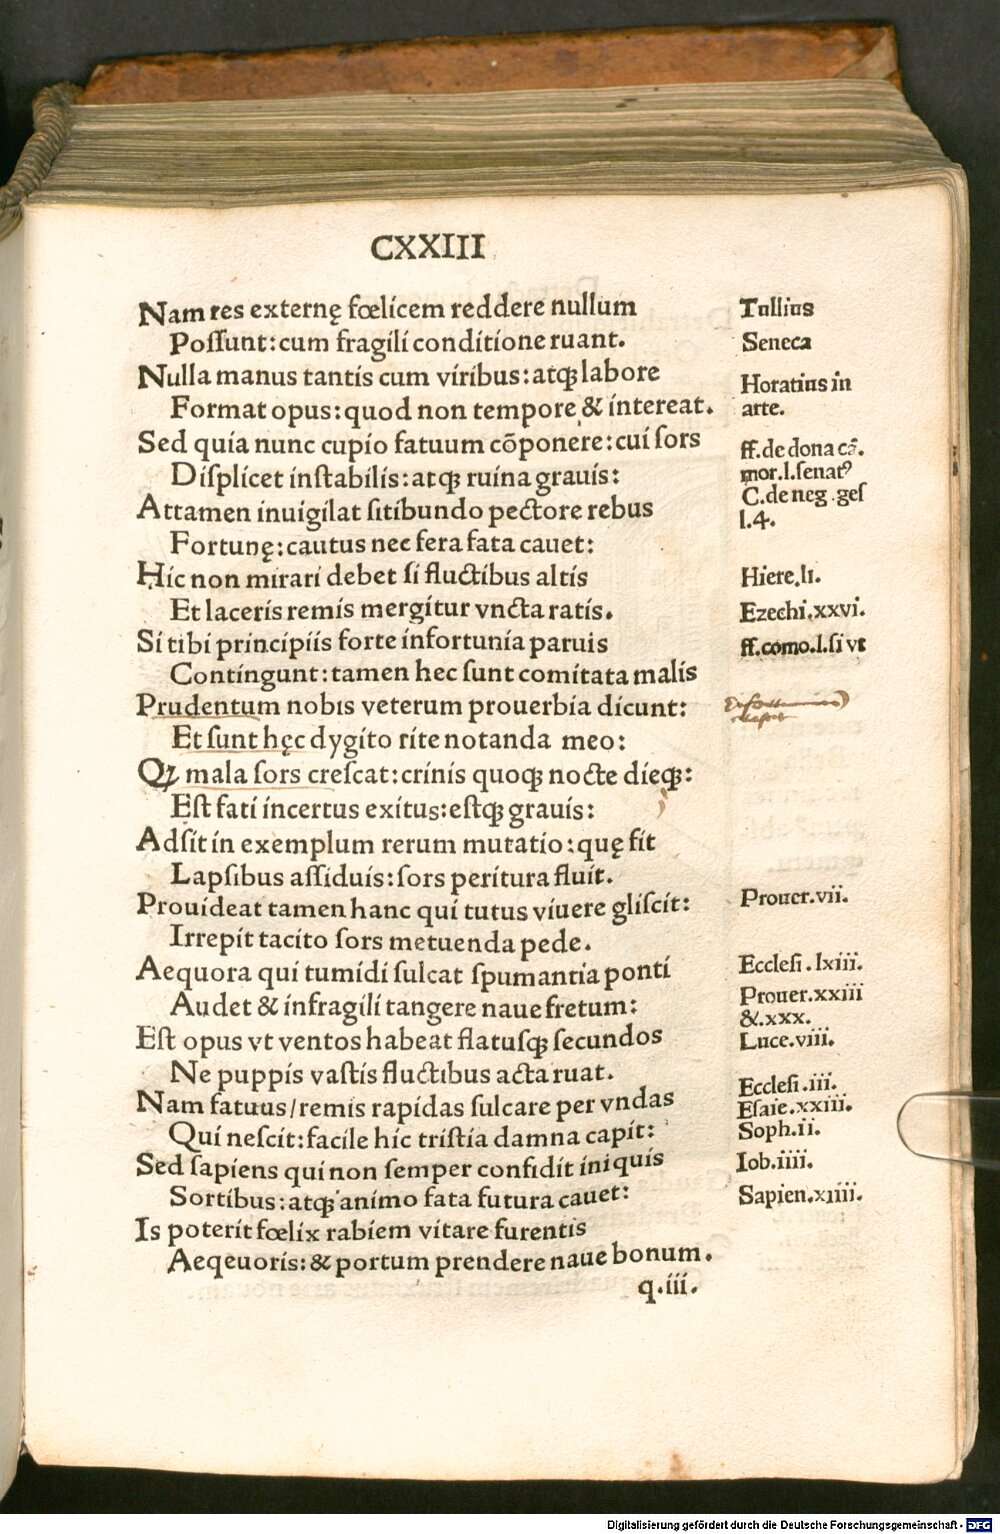 CXXIII
Nam res externę fœlicem reddere nullum
Possunt: cum fragili conditione ruant.
Nulla manus tantis cum viribus: atqꝫ labore
Format opus: quod non tempore & intereat.
Sed quia nunc cupio fatuum cõponere: cui sors
Displicet instabilis: atqꝫ ruina grauis:
Attamen inuigilat sitibundo pectore rebus
Fortunę: cautus nec fera fata cauet:
Hic non mirari debet si fluctibus altis
Et laceris remis mergitur vncta ratis.
Si tibi principiis forte infortunia paruis
Contingunt: tamen hec sunt comitata malis
Prudentum nobis veterum prouerbia dicunt:
Et sunt hęc dygito rite notanda meo:
Qꝫ mala sors crescat: crinis quoqꝫ nocte dieqꝫ:
Est fati incertus exitus: estqꝫ grauis:
Adsit in exemplum rerum mutatio: quę fit
Lapsibus assiduis: sors peritura fluit.
Prouideat tamen hanc qui tutus viuere gliscit:
Irrepit tacito sors metuenda pede.
Aequora qui tumidi sulcat spumantia ponti
Audet & infragili tangere naue fretum:
Est opus vt ventos habeat flatusqꝫ secundos
Ne puppis vastis fluctibus acta ruat.
Nam fatuus/remis rapidas sulcare per vndas
Qui nescit: facile hic tristia damna capit:
Sed sapiens qui non semper confidit iniquis
Sortibus: atqꝫ animo fata futura cauet:
Is poterit fœlix rabiem vitare furentis
Aeqeuoris: & portum prendere naue bonum.
q.iii.
Tullius
Seneca
Horatius in
arte.
ff.de dona cã.
mor.l.senatꝰ
C.de neg.ges
l.4.
Hiere.li.
Ezechi.xxvi.
ff.como.l.si vt
Prouer.vii.
Ecclesi.lxiii.
Prouer.xxiii
&.xxx.
Luce.viii.
Ecclesi.iii.
Esaie.xxiii.
Soph.ii.
Iob.iiii.
Sapien.xiiii.
Digitalisierung gefördert durch die Deutsche Forschungsgemeinschaft - DFG